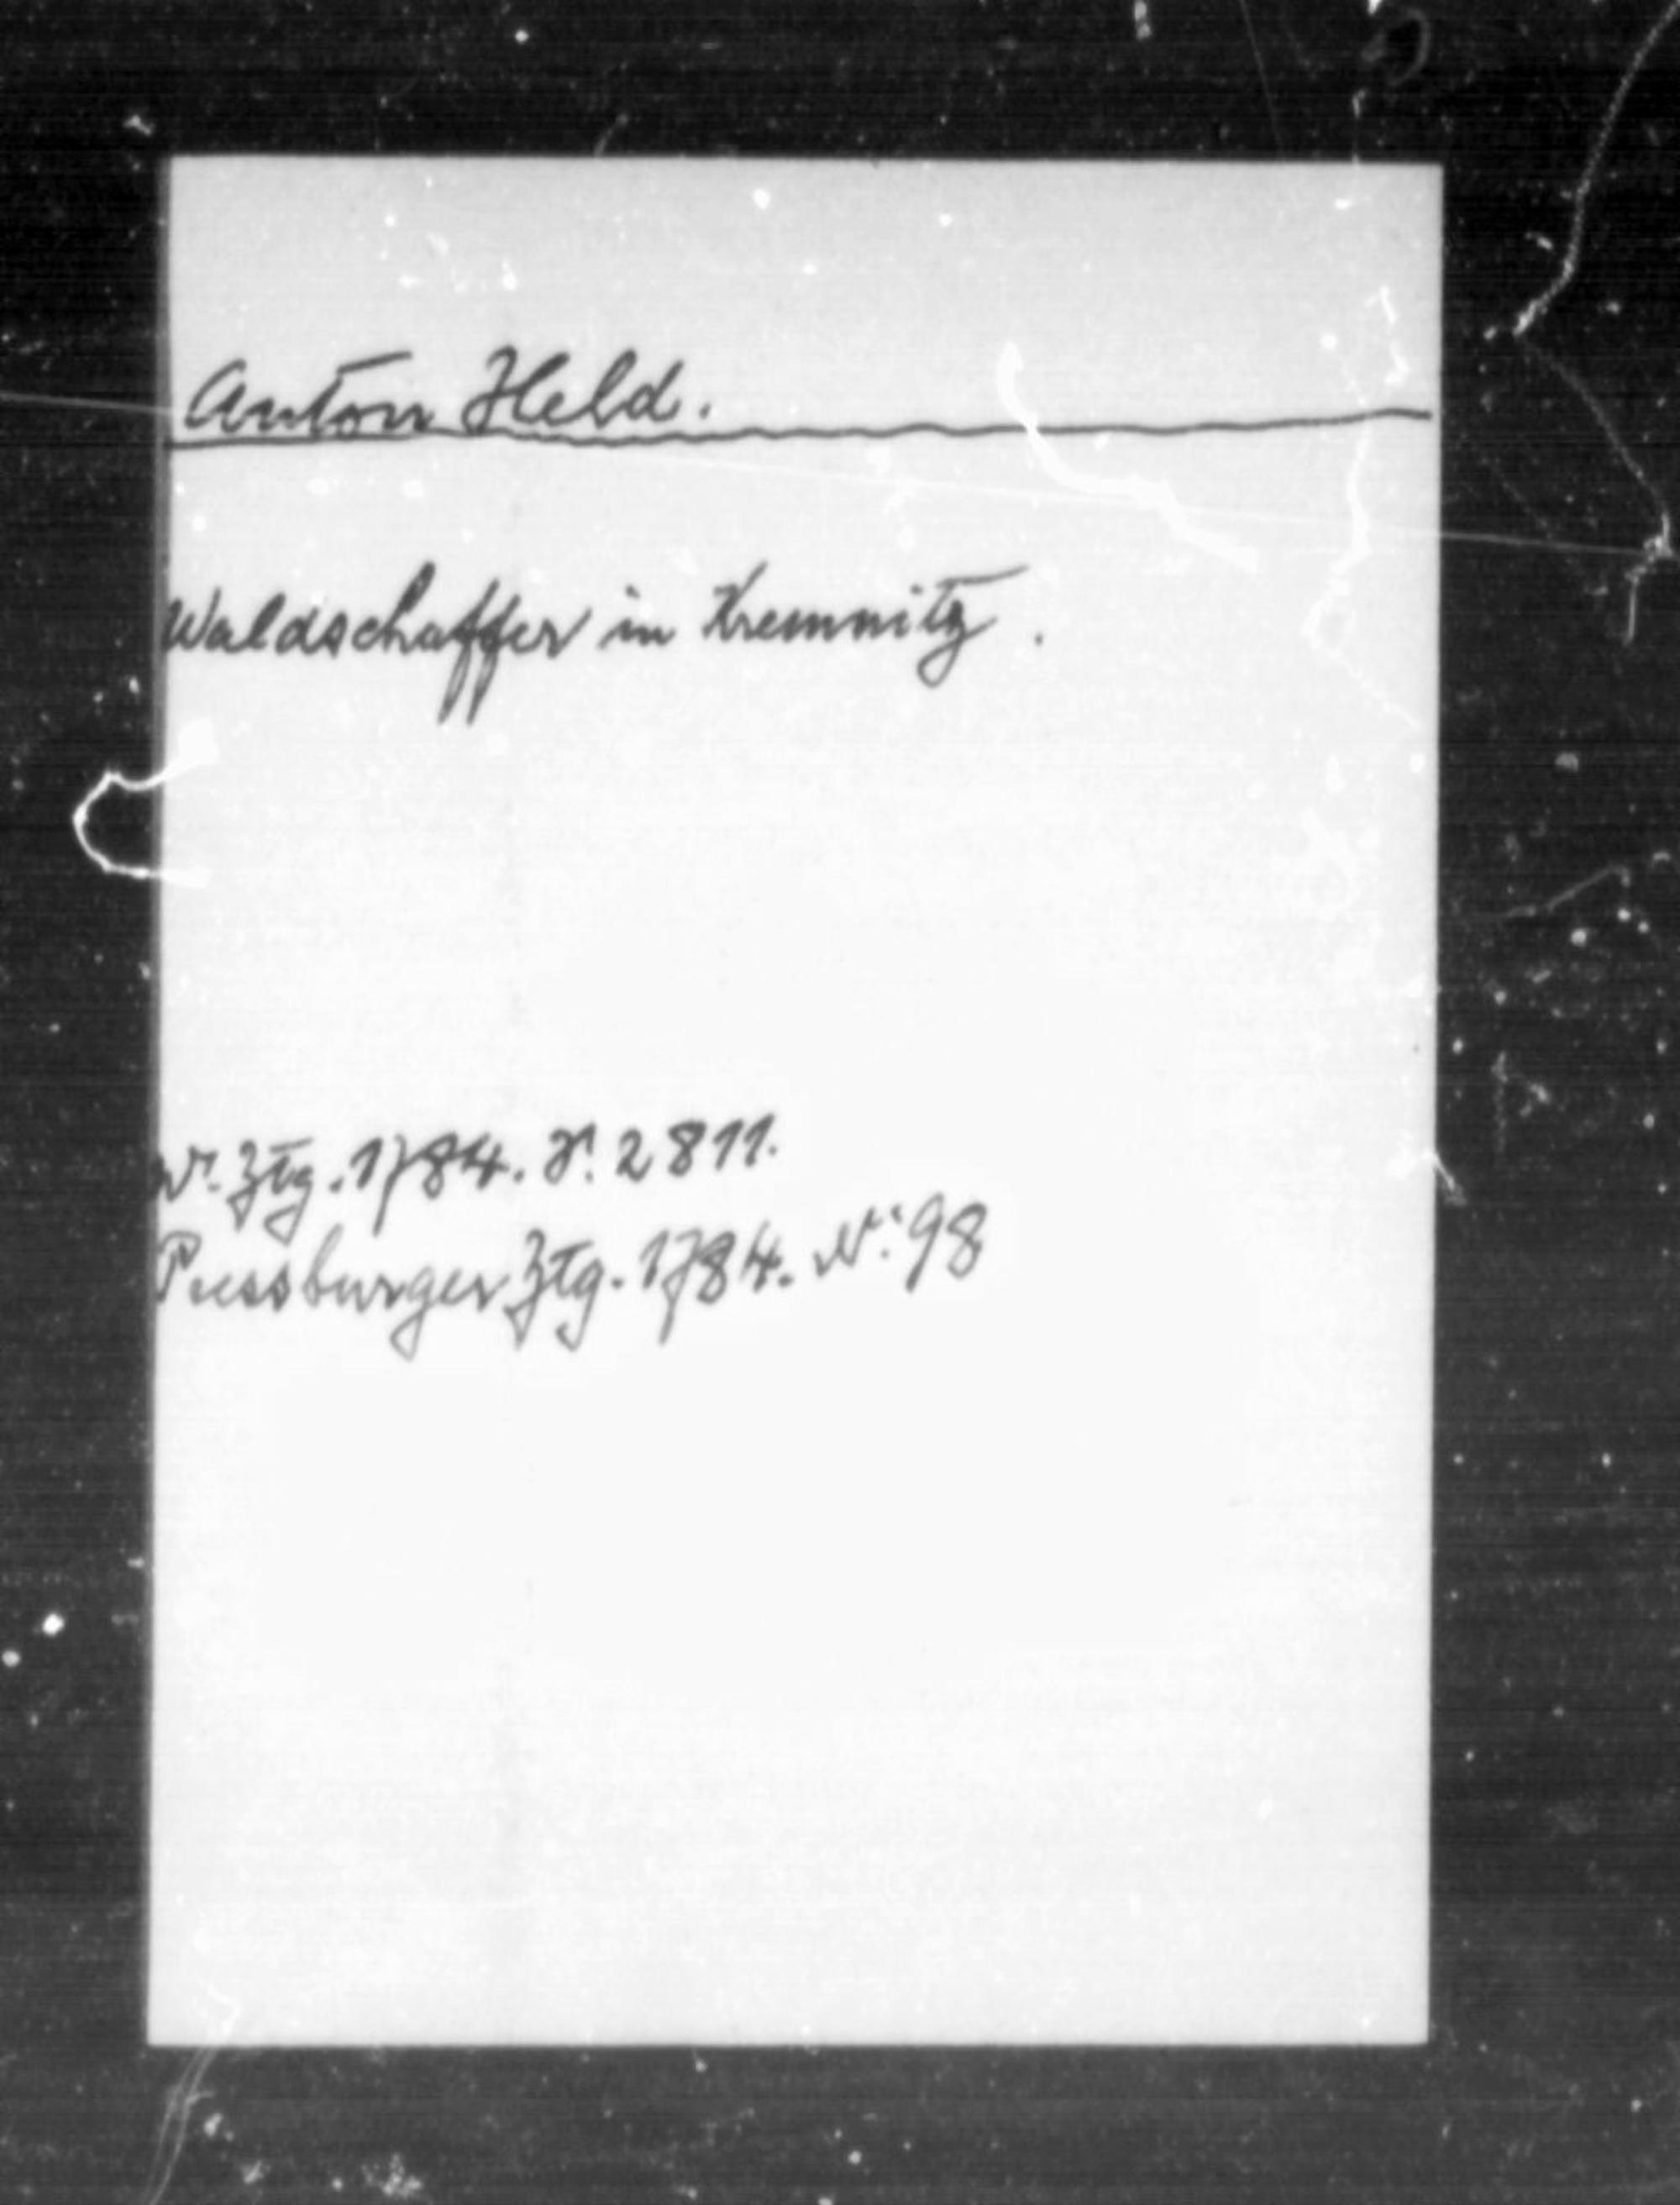 Anton Held.
Waldschaffer in Kremnitz.
Wr. Ztg. 1784. S. 2811.
Pressburger Ztg. 1784. Nr. 98